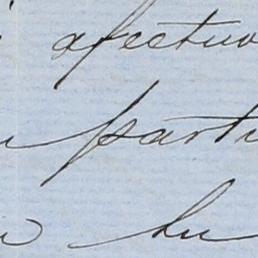 afectuo
parti
su